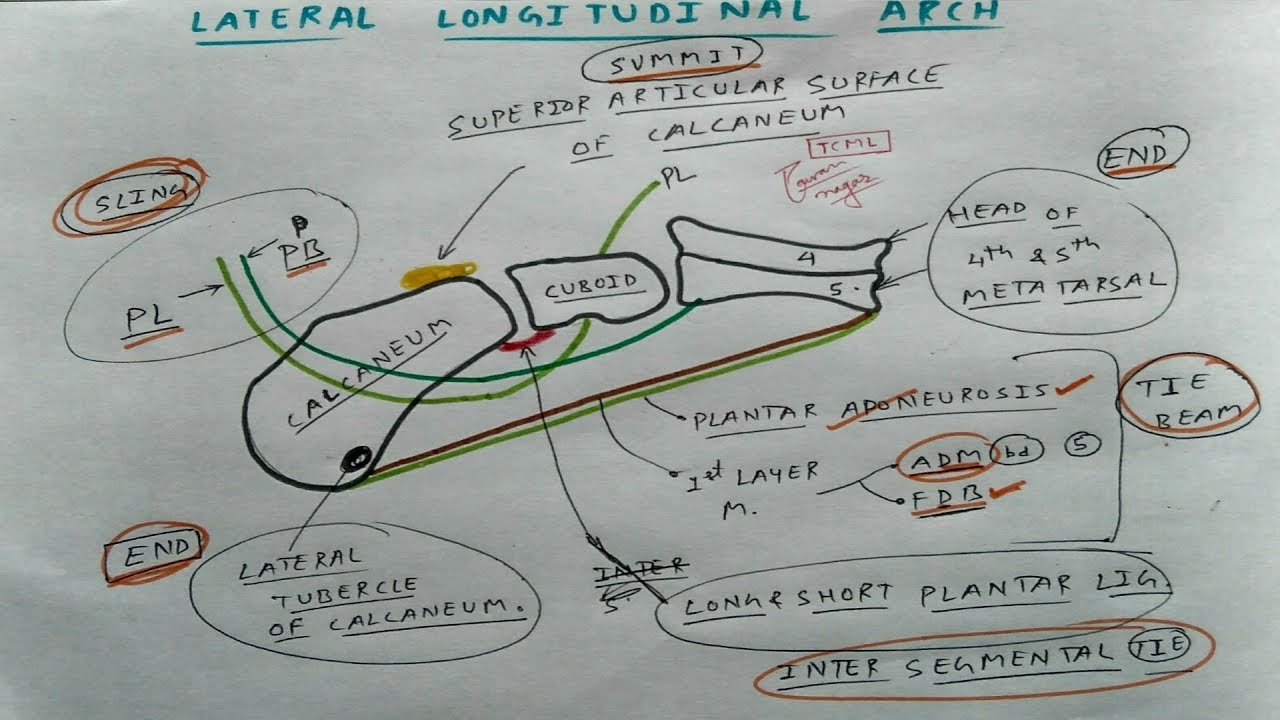 LATERAL LONGITUDINAL ARCH
SUMMIT
SUPERIOR ARTICULAR SURFACE
OF CALCANEUM
TCML
PL
END
SLING
P
PB
PL
HEAD OF
4th & 5th
METATARSAL
4
5.
CUBOID
CALCANEUM
PLANTAR APONEUROSIS
TIE
BEAM
1st LAYER
M.
ADM bd 5
FDB
END
LATERAL
TUBERCLE
OF CALCANEUM.
INTER
LONG & SHORT PLANTAR LIG.
INTER SEGMENTAL TIE